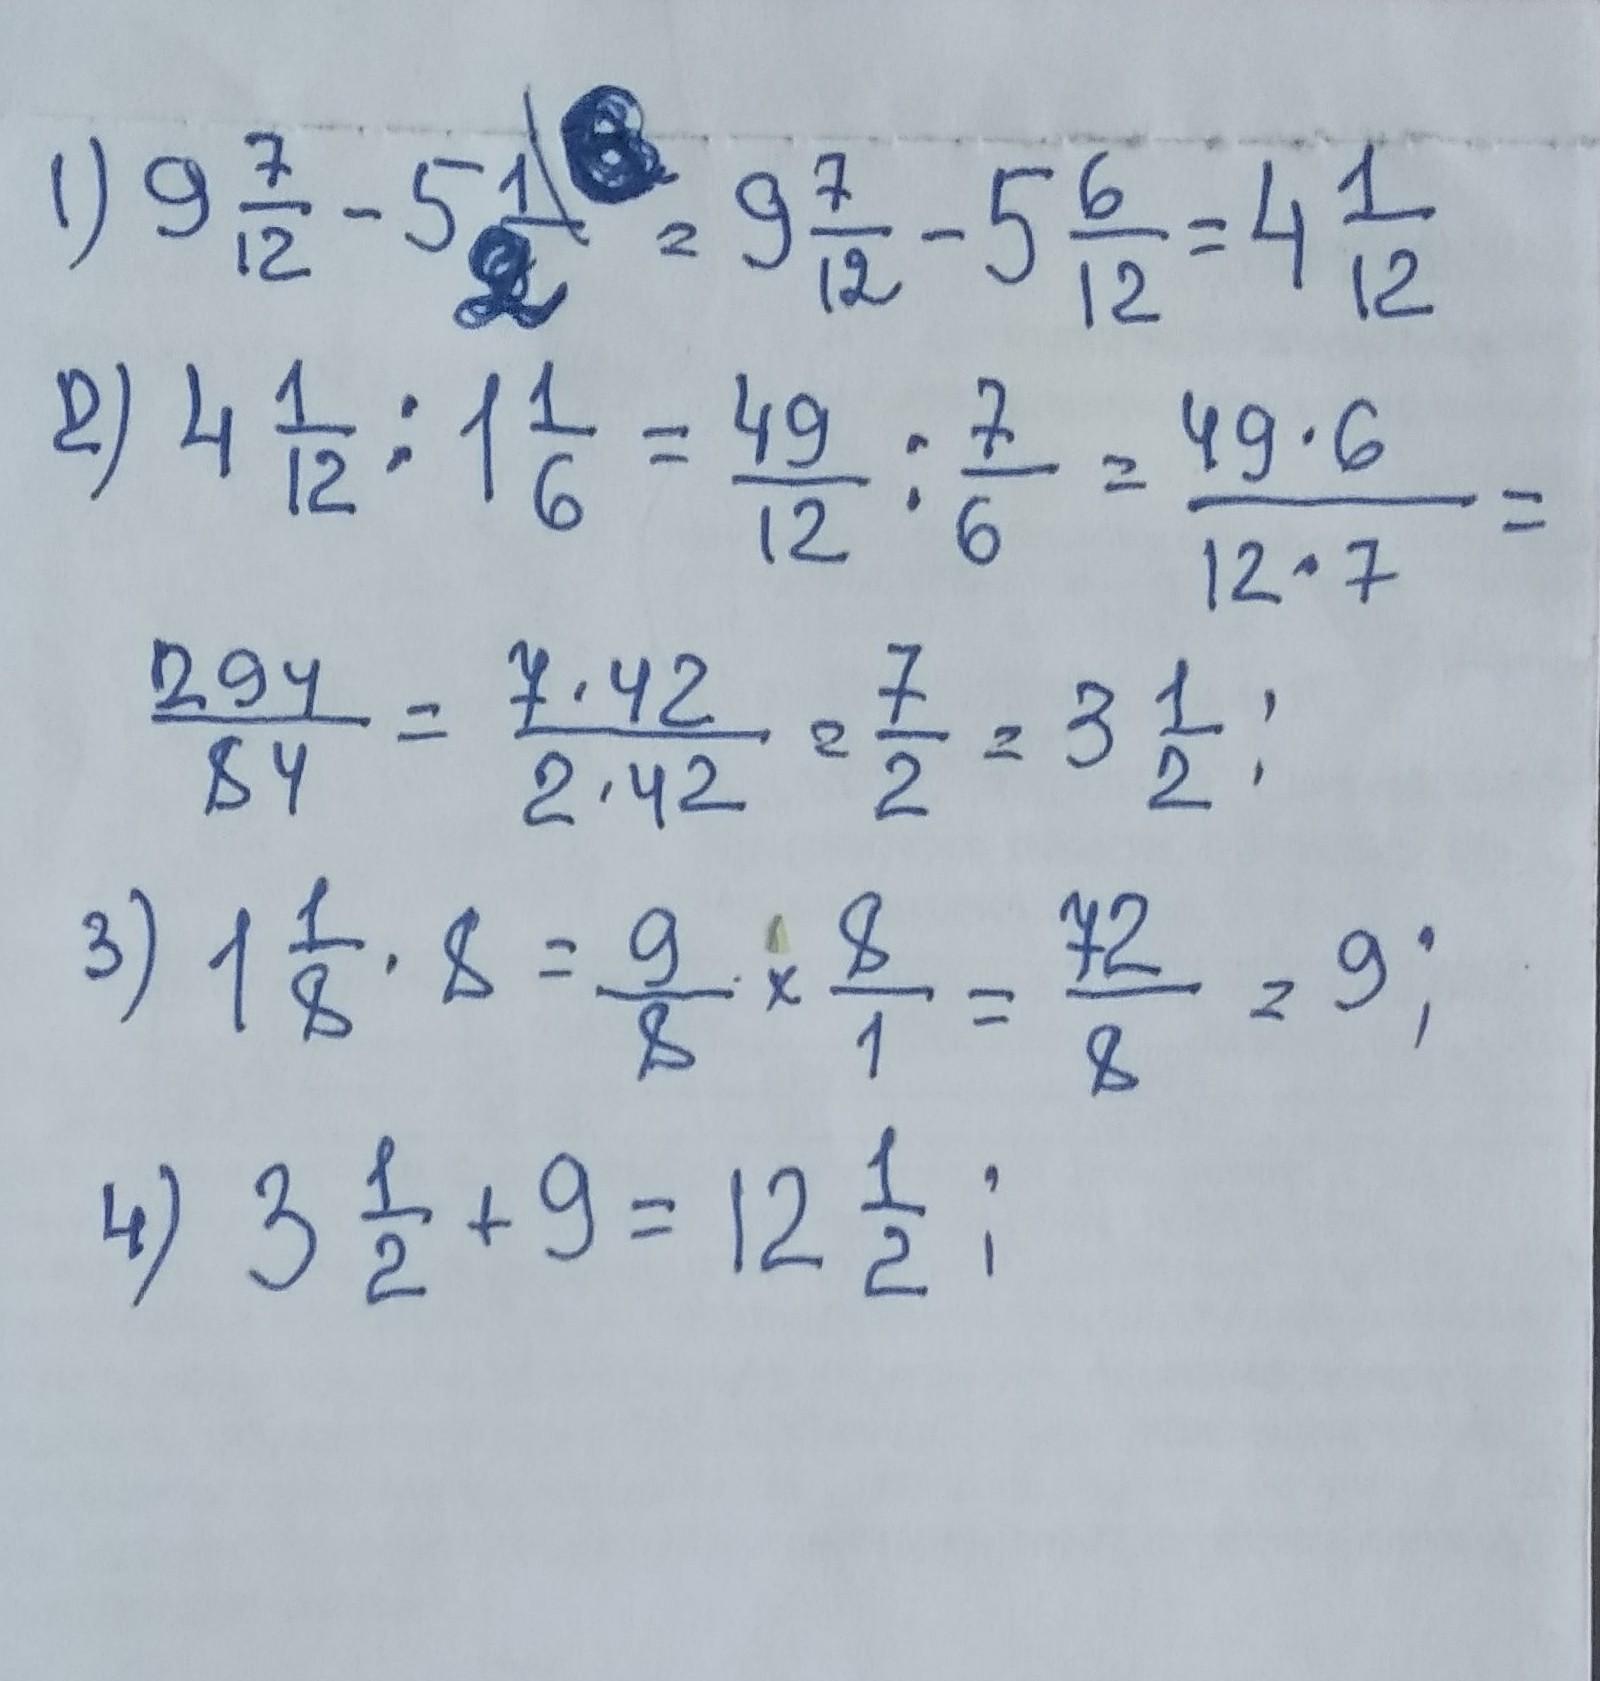 1) 9 7/12 - 5 1/2 \ 6 = 9 7/12 - 5 6/12 = 4 1/12
2) 4 1/12 : 1 1/6 = 49/12 : 7/6 = 49·6/12·7 =
294/84 = 7·42/2·42 = 7/2 = 3 1/2;
3) 1 1/8 · 8 = 9/8 × 8/1 = 72/8 = 9;
4) 3 1/2 + 9 = 12 1/2;